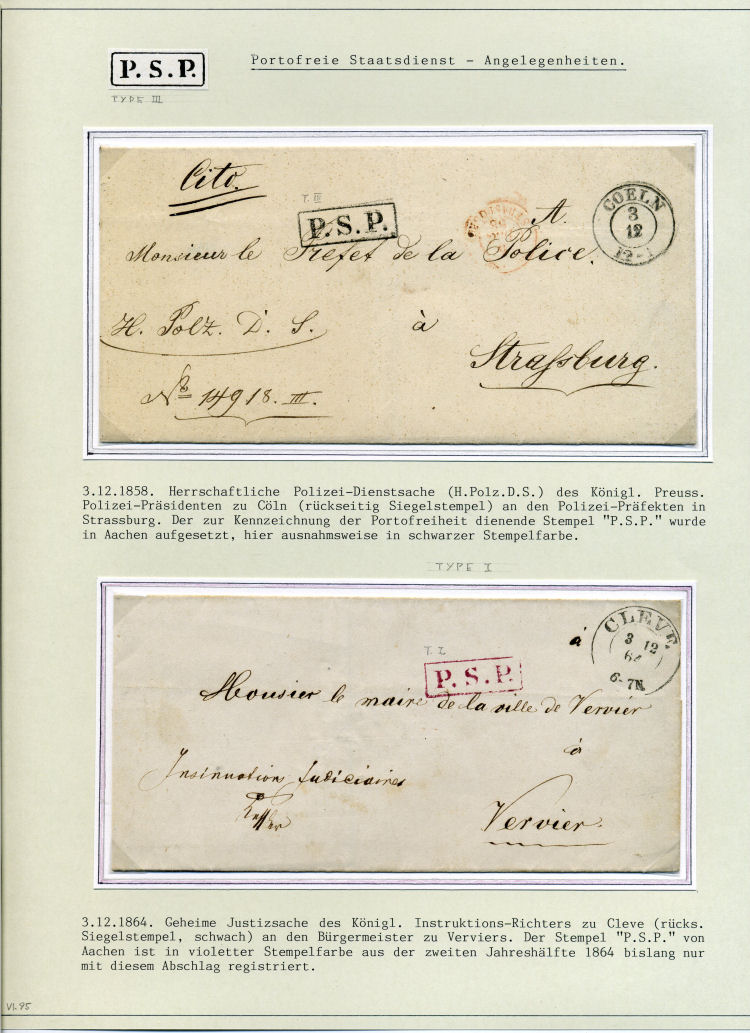 P. S. P.
Portofreie Staatsdienst - Angelegenheiten.
TYPE III
Cito.
T. III
P.S.P.
A.
COELN
3
12
12-1
Monsieur le Prefet de la Police.
H. Polz. D. S.
à
Strassburg.
No 14918. III.
3.12.1858. Herrschaftliche Polizei-Dienstsache (H.Polz.D.S.) des Königl. Preuss.
Polizei-Präsidenten zu Cöln (rückseitig Siegelstempel) an den Polizei-Präfekten in
Strassburg. Der zur Kennzeichnung der Portofreiheit dienende Stempel "P.S.P." wurde
in Aachen aufgesetzt, hier ausnahmsweise in schwarzer Stempelfarbe.
TYPE I
à
CLEVE.
3 12
64
6-7N.
T. I.
P. S. P.
Monsier le maire de la ville de Vervier
à
Insinuation Judiciaires
Vervier.
3.12.1864. Geheime Justizsache des Königl. Instruktions-Richters zu Cleve (rücks.
Siegelstempel, schwach) an den Bürgermeister zu Verviers. Der Stempel "P.S.P." von
Aachen ist in violetter Stempelfarbe aus der zweiten Jahreshälfte 1864 bislang nur
mit diesem Abschlag registriert.
VI.95